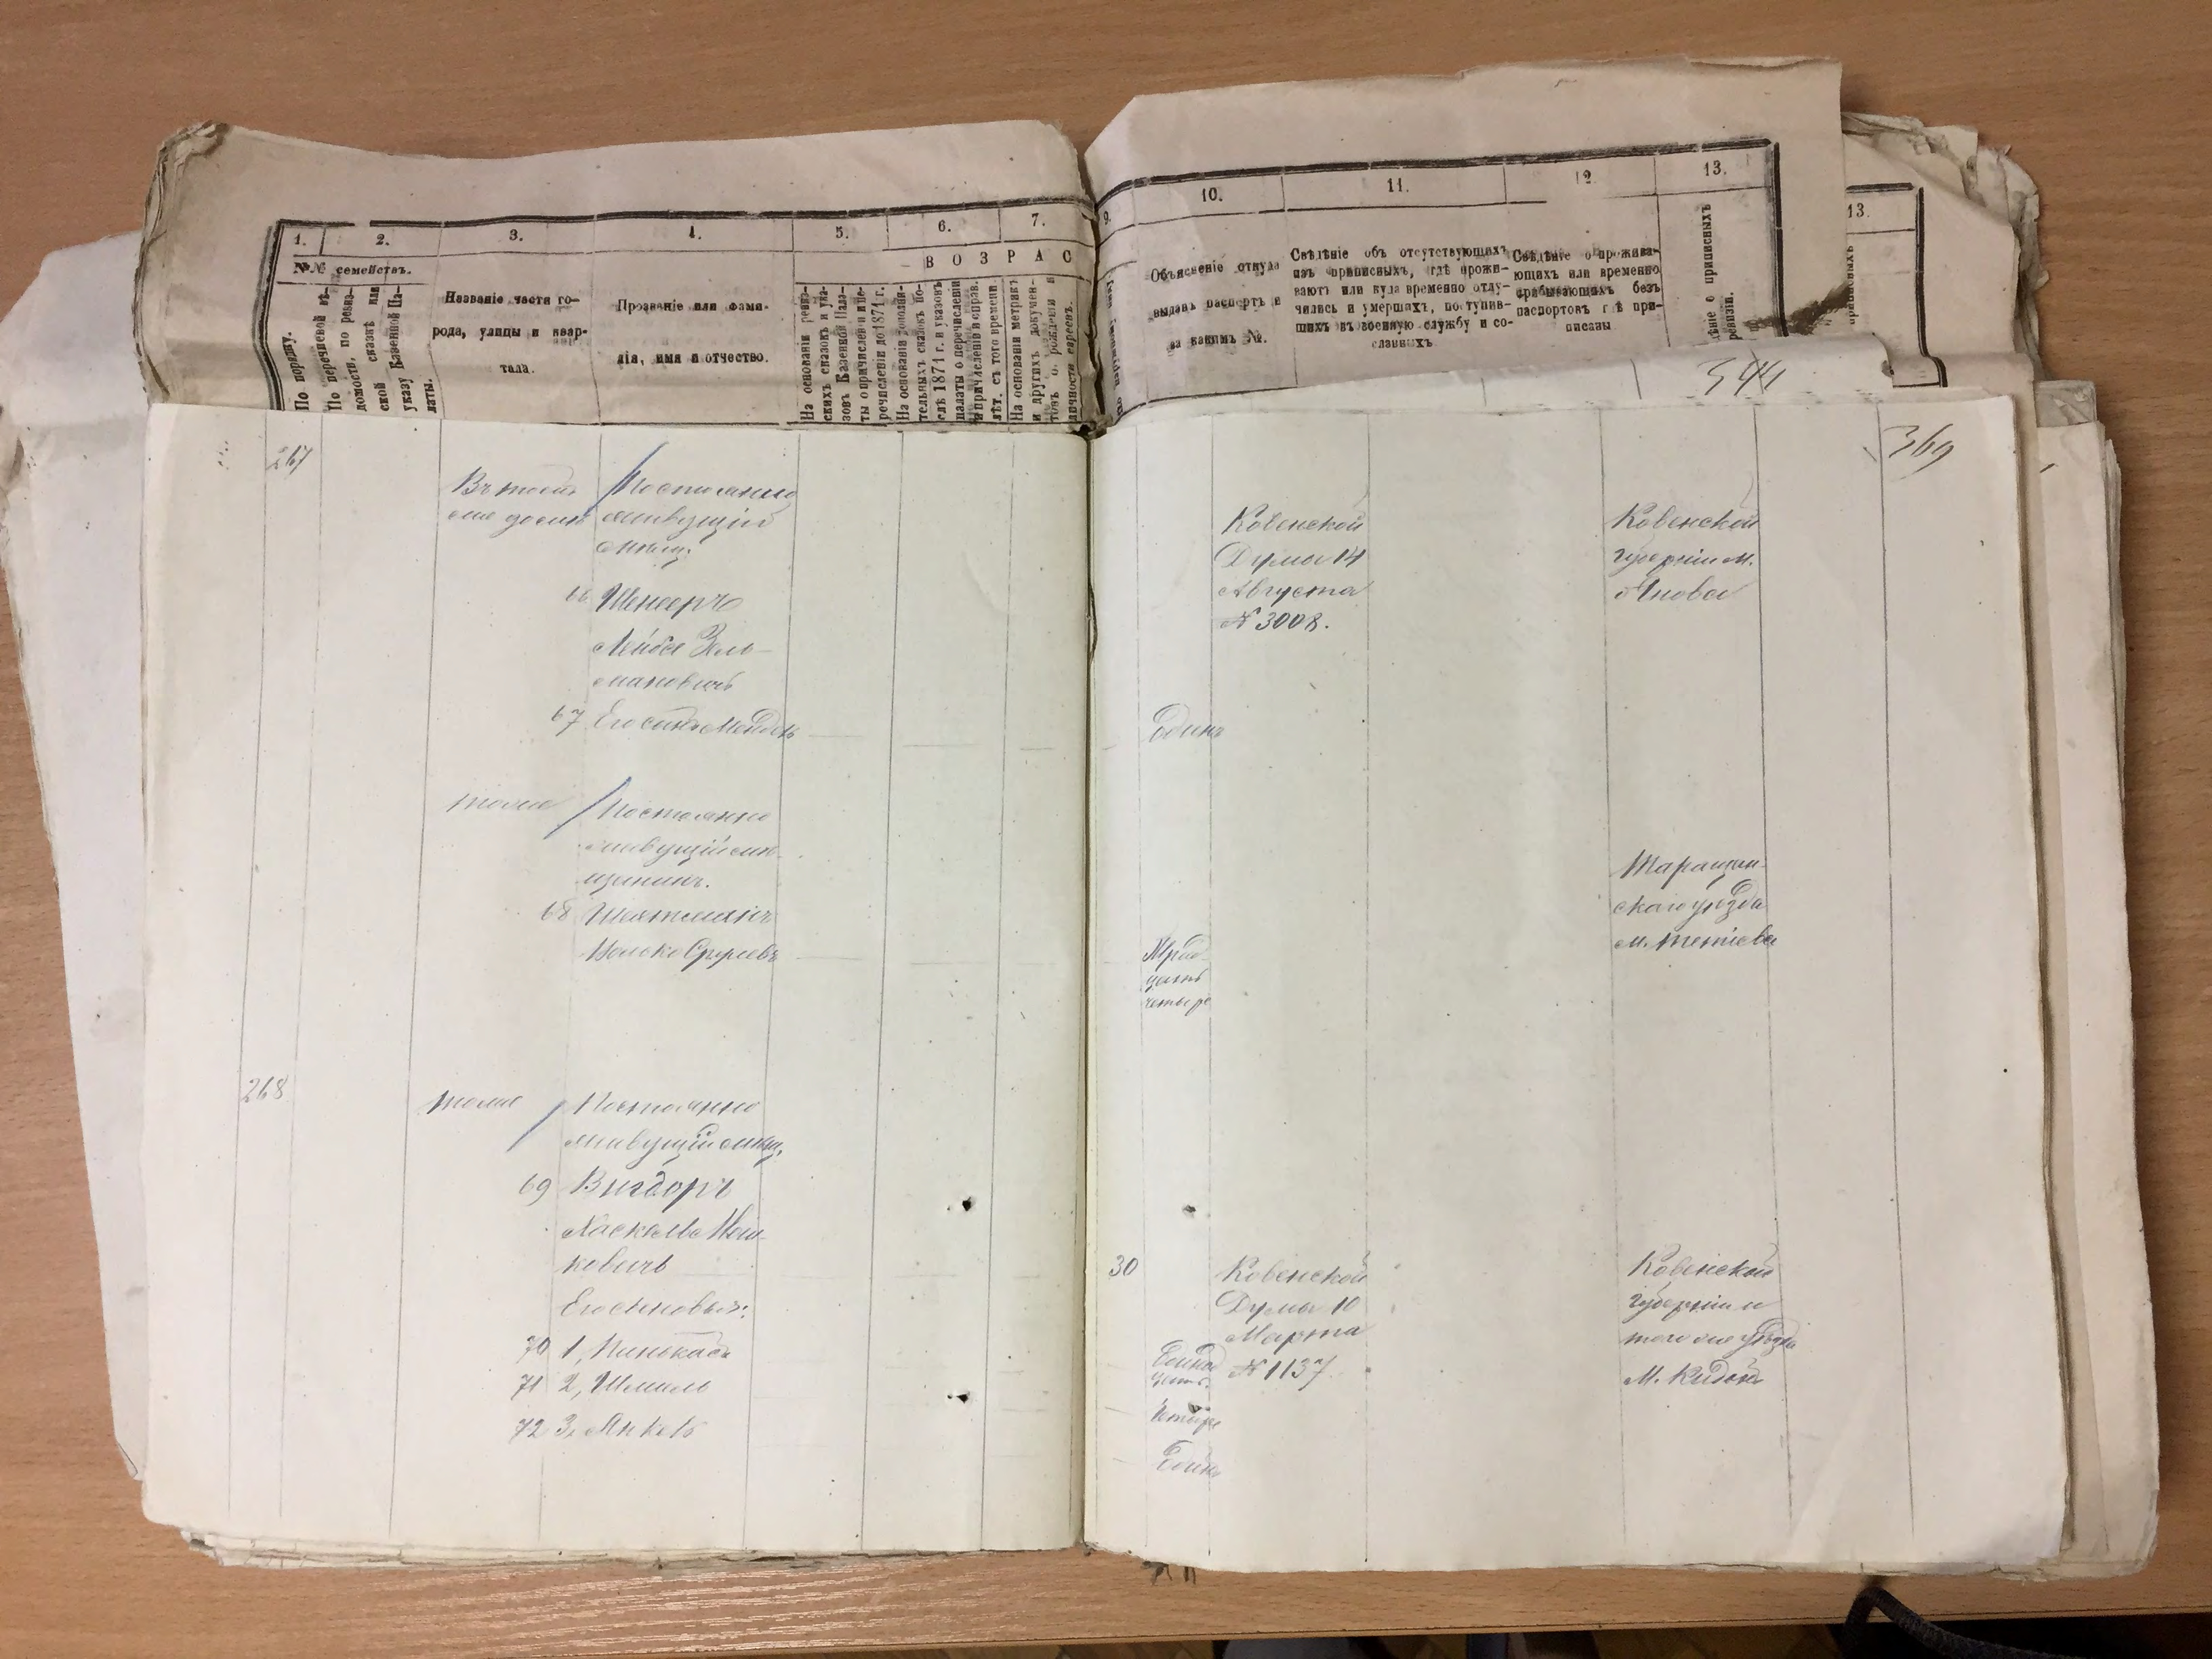 1. 2. 3. 4. 5. 6. 7.
№№ семействъ.
В О З Р А С
По порядку.
По перечневой вѣ-
домости, по ревиз-
ской сказкѣ или
указу Казенной Па-
латы.
Названіе части го-
рода, улицы и квар-
тала.
Прозваніе или фами-
лія, имя и отчество.
На основаніи ревиз-
скихъ сказокъ и ука-
зовъ Казенной Пала-
ты о причисленіи и пе-
речисленіи до 1871 г.
На основаніи дополни-
тельныхъ сказокъ по-
слѣ 1871 г. и указовъ
палаты о перечисленіи
и причисленіи и справ.
лѣт. съ того времени.
На основаніи метрикъ
и другихъ докумен-
товъ о рожденіи и
личности евреевъ.
9. 10. 11. 12. 13.
Объясненіе откуда
выданъ паспортъ и
за какимъ №.
Свѣдѣніе объ отсутствующихъ
изъ приписныхъ, гдѣ прожи-
ваютъ или куда временно отлу-
чились и умершихъ, поступив-
шихъ въ военную службу и со-
сланныхъ
Свѣдѣніе о прожива-
ющихъ или временно
прибывающихъ безъ
паспортовъ гдѣ при-
писаны
приписныхъ
ревизіи.
13.
344
369
267
Въ томъ
же домѣ
Постоянно
живущій
мѣщ:
66 Шенсеръ
Лейба Зель-
мановичъ
67 Его сынъ Мендель
Одинъ
Ковенской
Думы 14
Августа
№ 3008.
Ковенской
губерніи м.
Янова
тоже
Постоянно
живущій мѣ-
щанинъ.
68 Шахманъ
Волько Сруревъ
Трид-
цать
четыре
Таращан-
скаго уѣзда
м. Тетіева
268
тоже
Постоянно
живущій мѣщ.
69 Вигдоръ
Хаскель Мош-
ковичъ
30
Ковенской
Думы 10
Марта
№ 1137.
Ковенской
губерніи и
того же уѣзда
М. Кидань
Его сыновья:
70 1, Пинькасъ
71 2, Шмиль
Четыре
72 3, Янкель
Одинъ